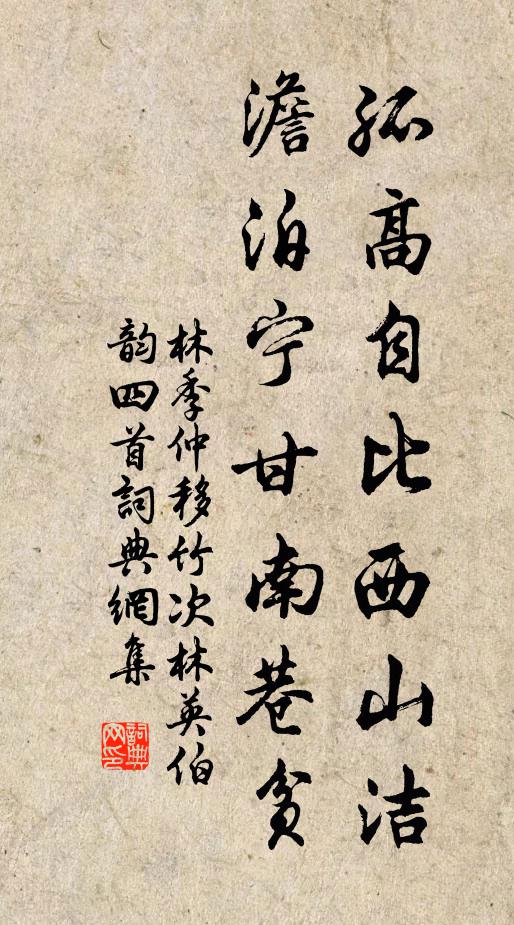 孤高自比西山洁
澹泊宁甘南巷贫
林季仲移竹次林英伯
韵四首詞典網集
詞典网印